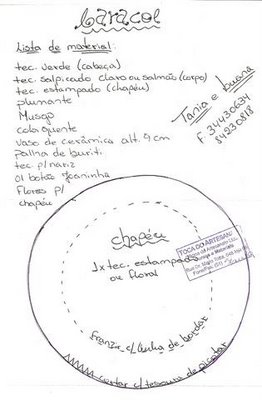 Caracol
Lista de material:
tec. verde (cabeça)
tec. salpicado claro ou salmão (corpo)
tec. estampado (chapéu)
plumante
Musgo
cola quente
vaso de cerâmica alt. 9 cm
palha de buriti
tec p/ nariz
01 botão Joaninha
Flores p/
chapéu
Tania e Luana
F: 34430634
84230818
chapéu
1x tec. estampado
ou floral
TOCA DO ARTESANATO
franzir c/ linha de bordar
cortar c/ tesoura de picotar